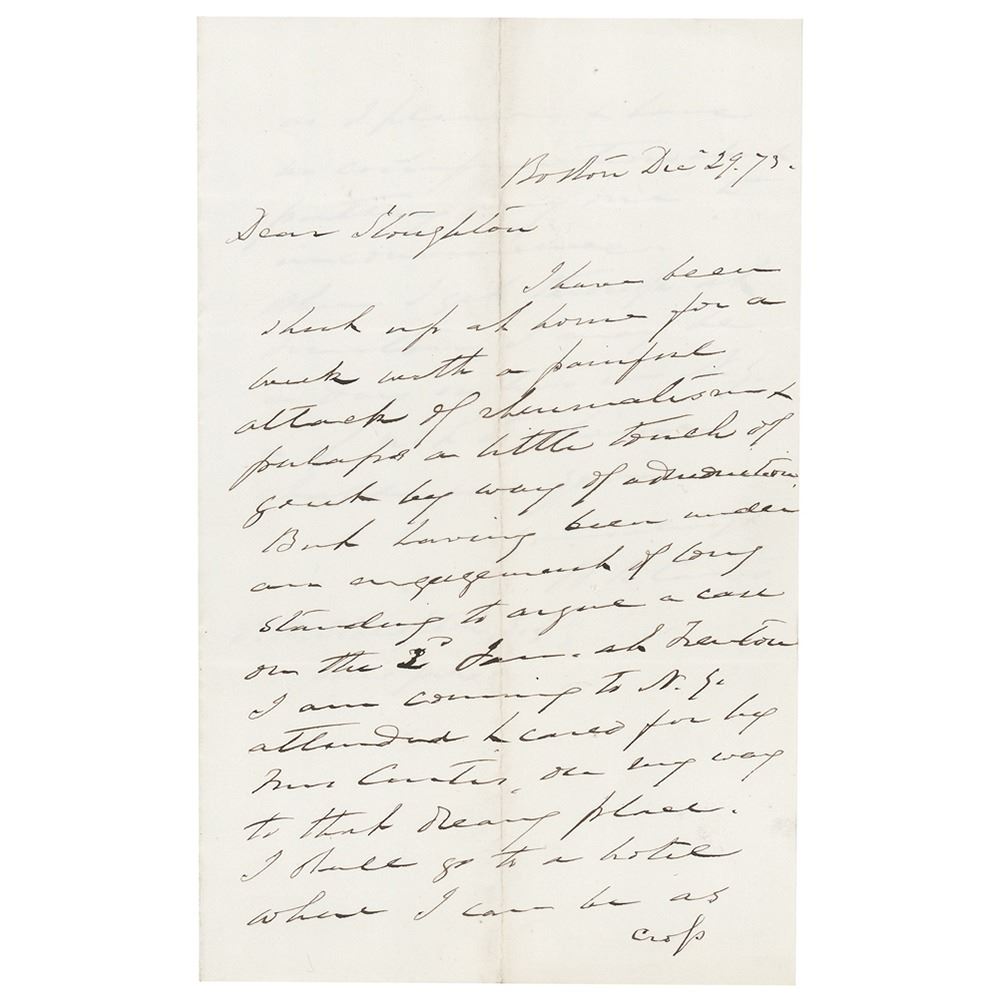 Boston Dec 29. 73.
Dear Stoughton
I have been
shut up at home for a
week with a painful
attack of rheumatism &
perhaps a little touch of
gout by way of
But having been under
an engagement of long
standing to argue a case
on the 2d Jan. at Trenton
I am coming to N.Y.
attended & cared for by
Mrs Curtis, on my way
to that dreary place.
I shall go to a hotel
where I can be as
cross